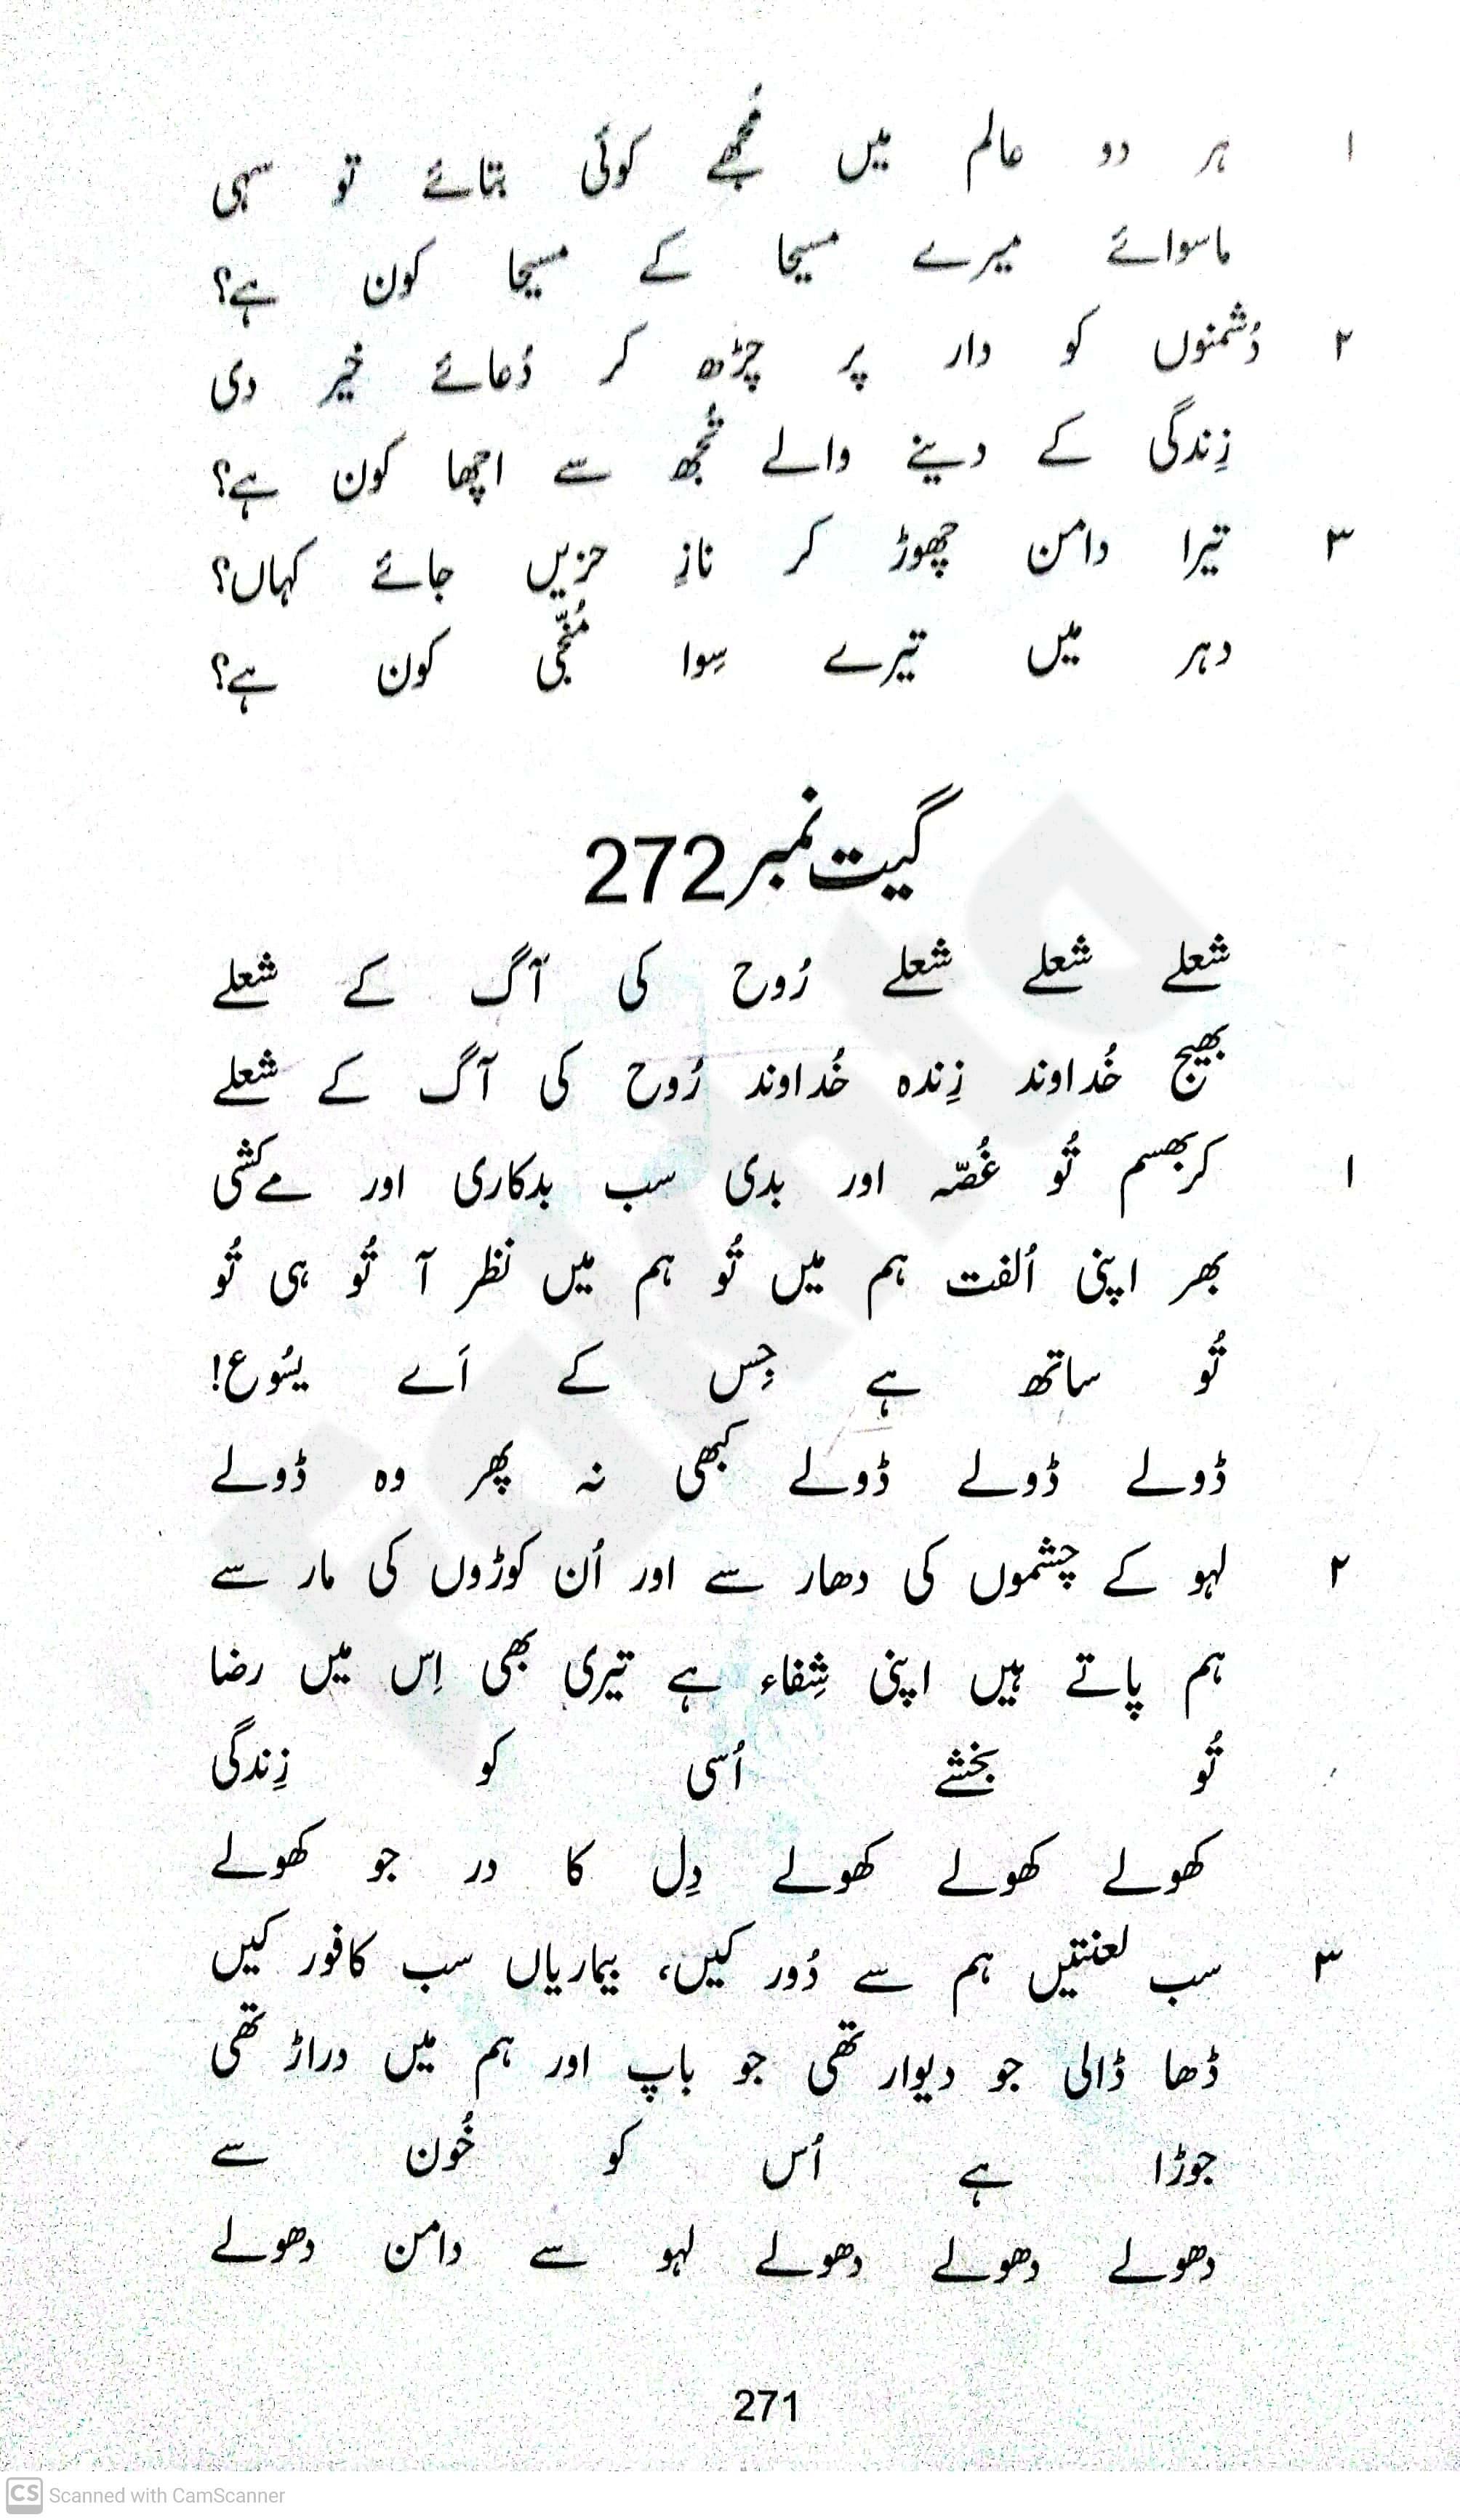 ۱ ہر دو عالم میں مُجھے کوئی بتائے تو سہی
ماسوائے میرے مسیحا کے مسیحا کون ہے؟
۲ دُشمنوں کو دار پر چڑھ کر دُعائے خیر دی
زِندگی کے دینے والے تُجھ سے اچھا کون ہے؟
۳ تیرا دامن چھوڑ کر نازِ حزیں جائے کہاں؟
دہر میں تیرے سِوا مُنّجی کون ہے؟
گیت نمبر 272
شعلے شعلے شعلے رُوح کی آگ کے شعلے
بھیج خُداوند زِندہ خُداوند رُوح کی آگ کے شعلے
۱ کربھسم تُو غُصّہ اور بدی سب بدکاری اور مےکشی
بھر اپنی اُلفت ہم میں تُو ہم میں نظر آ تُو ہی تُو
تُو ساتھ ہے جِس کے اَے یسُوع!
ڈولے ڈولے ڈولے کبھی نہ پھر وہ ڈولے
۲ لہو کے چشموں کی دھار سے اور اُن کوڑوں کی مار سے
ہم پاتے ہیں اپنی شِفاء ہے تیری بھی اِس میں رضا
تُو بخشے اُسی کو زِندگی
کھولے کھولے کھولے دِل کا در جو کھولے
۳ سب لعنتیں ہم سے دُور کیں، بیماریاں سب کافور کیں
ڈھا ڈالی جو دیوار تھی جو باپ اور ہم میں دراڑ تھی
جوڑا ہے اُس کو خُون سے
دھولے دھولے دھولے لہو سے دامن دھولے
271
CS Scanned with CamScanner